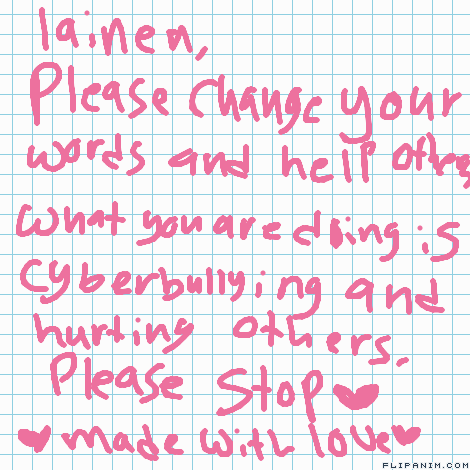 lainen,
Please change your
words and help others
What you are doing is
cyberbullying and
hurting others.
Please stop
made with love
FLIPANIM.COM